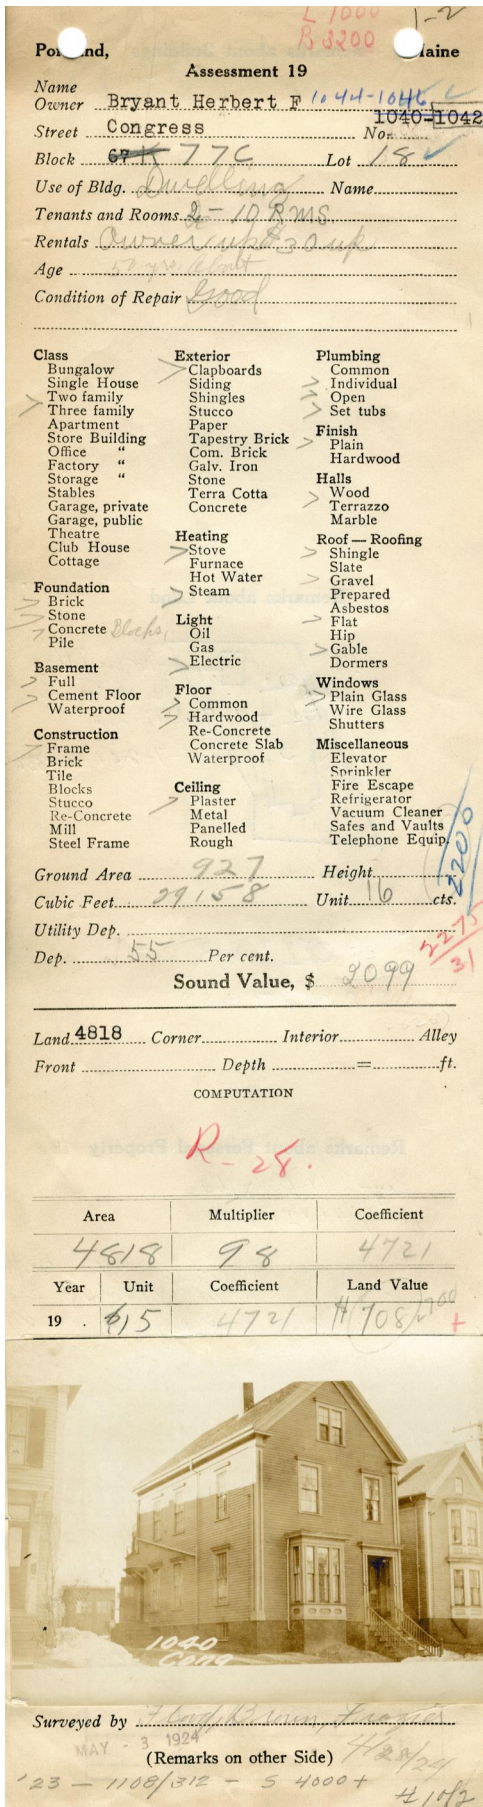 L 1000
B 3200
1-2
Portland, Maine
Assessment 19
Name
Owner Bryant Herbert F 1044-1046
1040-1042
Street Congress No.
Block 67 K 77C Lot 18
Use of Bldg. Dwelling Name
Tenants and Rooms 2 - 10 Rms.
Rentals Owner up $30 up
Age 50 yrs about
Condition of Repair Good
Class
Bungalow
Single House
Two family
Three family
Apartment
Store Building
Office "
Factory "
Storage "
Stables
Garage, private
Garage, public
Theatre
Club House
Cottage
Foundation
Brick
Stone
Concrete Blocks,
Pile
Basement
Full
Cement Floor
Waterproof
Construction
Frame
Brick
Tile
Blocks
Stucco
Re-Concrete
Mill
Steel Frame
Exterior
Clapboards
Siding
Shingles
Stucco
Paper
Tapestry Brick
Com. Brick
Galv. Iron
Stone
Terra Cotta
Concrete
Heating
Stove
Furnace
Hot Water
Steam
Light
Oil
Gas
Electric
Floor
Common
Hardwood
Re-Concrete
Concrete Slab
Waterproof
Ceiling
Plaster
Metal
Panelled
Rough
Plumbing
Common
Individual
Open
Set tubs
Finish
Plain
Hardwood
Halls
Wood
Terrazzo
Marble
Roof — Roofing
Shingle
Slate
Gravel
Prepared
Asbestos
Flat
Hip
Gable
Dormers
Windows
Plain Glass
Wire Glass
Shutters
Miscellaneous
Elevator
Sprinkler
Fire Escape
Refrigerator
Vacuum Cleaner
Safes and Vaults
Telephone Equip.
2200
Ground Area 927 Height
Cubic Feet 29158 Unit 16 cts.
Utility Dep.
2275
31
Dep. 55 Per cent.
Sound Value, $ 2099
Land 4818 Corner Interior Alley
Front Depth = ft.
COMPUTATION
R-28.
Area Multiplier Coefficient
4818 98 4721
Year Unit Coefficient Land Value
19 . $15 4721 $708 700 +
1040
Cong
Surveyed by Brown, Frazier
MAY - 3 1924
4/28/24
(Remarks on other Side)
'23 - 1108/312 - S 4000 +